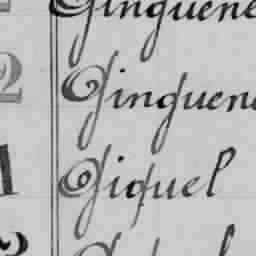 Ginguene
2 Ginguene
1 Giquel